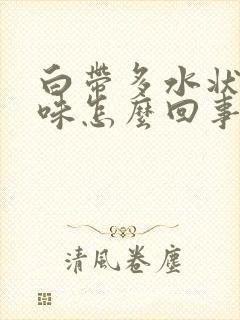 白帶多水狀
味怎麼回事
清風卷塵